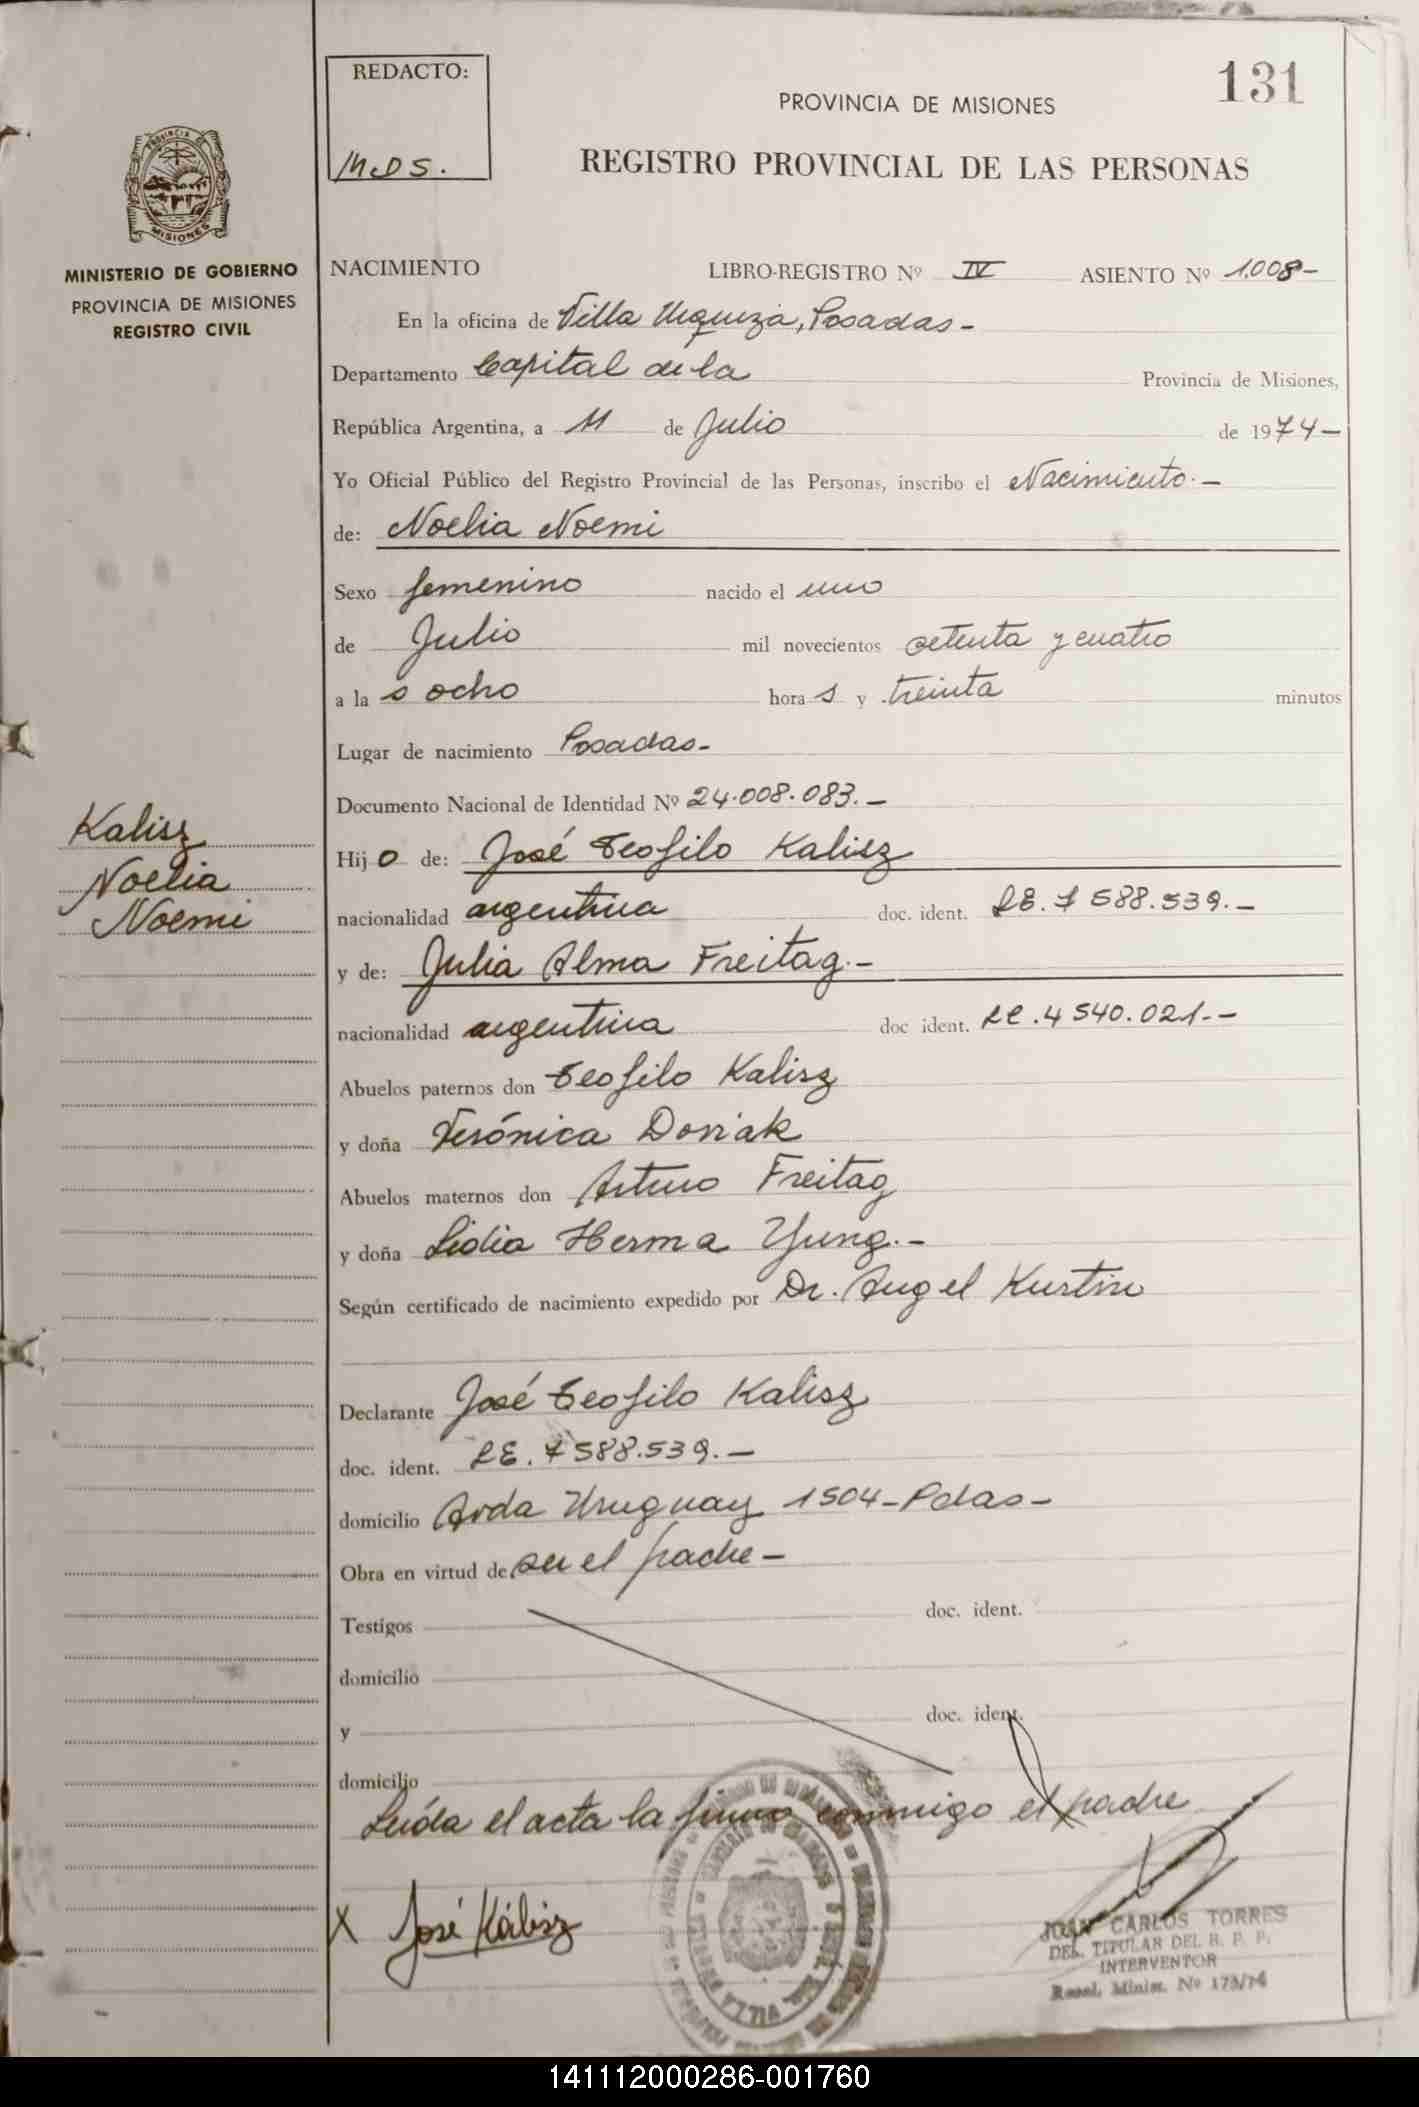 131
REDACTO:
M.D.S.
PROVINCIA DE MISIONES
REGISTRO PROVINCIAL DE LAS PERSONAS
PROVINCIA DE
MISIONES
MINISTERIO DE GOBIERNO
PROVINCIA DE MISIONES
REGISTRO CIVIL
NACIMIENTO LIBRO-REGISTRO Nº IV ASIENTO Nº 1.008-
En la oficina de Villa Urquiza, Posadas-
Departamento Capital de la Provincia de Misiones,
República Argentina, a 11 de Julio de 1974-
Yo Oficial Público del Registro Provincial de las Personas, inscribo el Nacimiento.-
de: Noelia Noemi
Sexo femenino nacido el uno
de Julio mil novecientos setenta y cuatro
a la s ocho hora s y treinta minutos
Lugar de nacimiento Posadas-
Documento Nacional de Identidad Nº 24.008.083.-
Kalisz
Noelia
Noemi
Hij o de: José Teofilo Kalisz
nacionalidad argentina doc. ident. LE. 7 588.539.-
y de: Julia Alma Freitag.-
nacionalidad argentina doc ident. LC. 4 540.021.-
Abuelos paternos don Teofilo Kalisz
y doña Verónica
Abuelos maternos don Arturo Freitag
y doña Lidia Herma Yung.-
Según certificado de nacimiento expedido por Dr. Angel
Declarante José Teofilo Kalisz
doc. ident. LE. 7 588.539.-
domicilio Avda Uruguay 1504-Pdas-
Obra en virtud de ser el padre-
Testigos doc. ident.
domicilio
y doc. ident.
domicilio
Leída el acta la firma conmigo el padre
X José Kálisz
JUAN CARLOS TORRES
DEL. TITULAR DEL R. P. P.
INTERVENTOR
Resol. Minist. Nº 173/74
VILLA
141112000286-001760